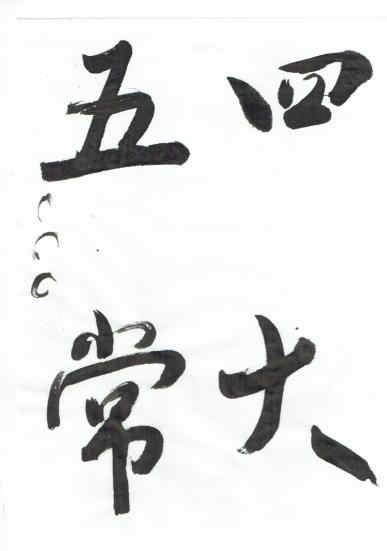 四大
五常